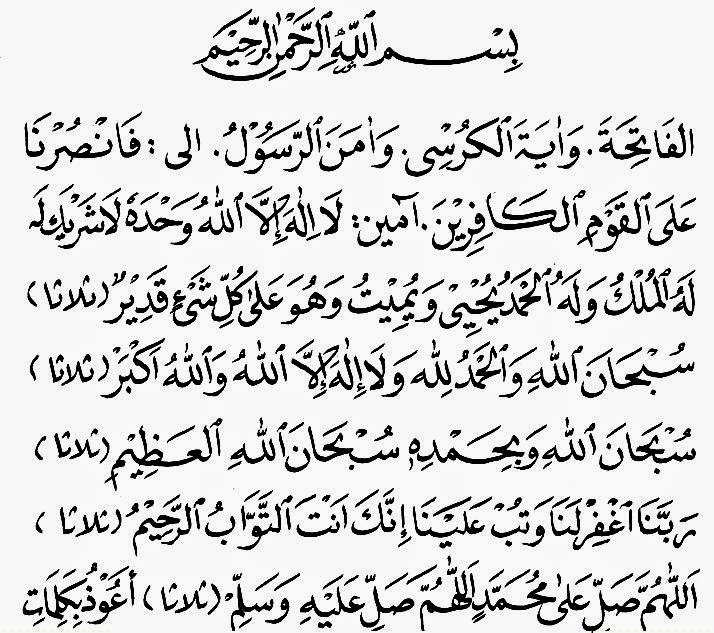 بِسْمِ اللهِ الرَّحْمٰنِ الرَّحِيْمِ
الفَاتِحَةَ. وَاٰيَةَ الكُرْسِى. وَاٰمَنَ الرَّسُوْلُ. الى : فَانْصُرْنَا
عَلَى القَوْمِ الْكَافِرِيْنَ. آمين: لَا اِلٰهَ اِلَّا اللهُ وَحْدَهُ لَا شَرِيْكَ لَهُ
لَهُ الْمُلْكُ وَلَهُ الْحَمْدُ يُحْيِىْ وَيُمِيْتُ وَهُوَ عَلَىٰ كُلِّ شَىْءٍ قَدِيْرٌ (ثلاثا)
سُبْحَانَ اللهِ وَالْحَمْدُ لِلّٰهِ وَلَا إِلٰهَ اِلَّا اللهُ وَاللهُ اَكْبَرْ (ثلاثا)
سُبْحَانَ اللهِ وَبِحَمْدِهِ سُبْحَانَ اللهِ الْعَظِيْمِ (ثلاثا)
رَبَّنَا اغْفِرْلَنَا وَتُبْ عَلَيْنَا إِنَّكَ اَنْتَ التَّوَّابُ الرَّحِيْمُ (ثلاثا)
اَللّٰهُمَّ صَلِّ عَلىٰ مُحَمَّدٍ اَللّٰهُمَّ صَلِّ عَلَيْهِ وَسَلِّمْ (ثلاثا) أَعُوْذُ بِكَلِمَاتِ